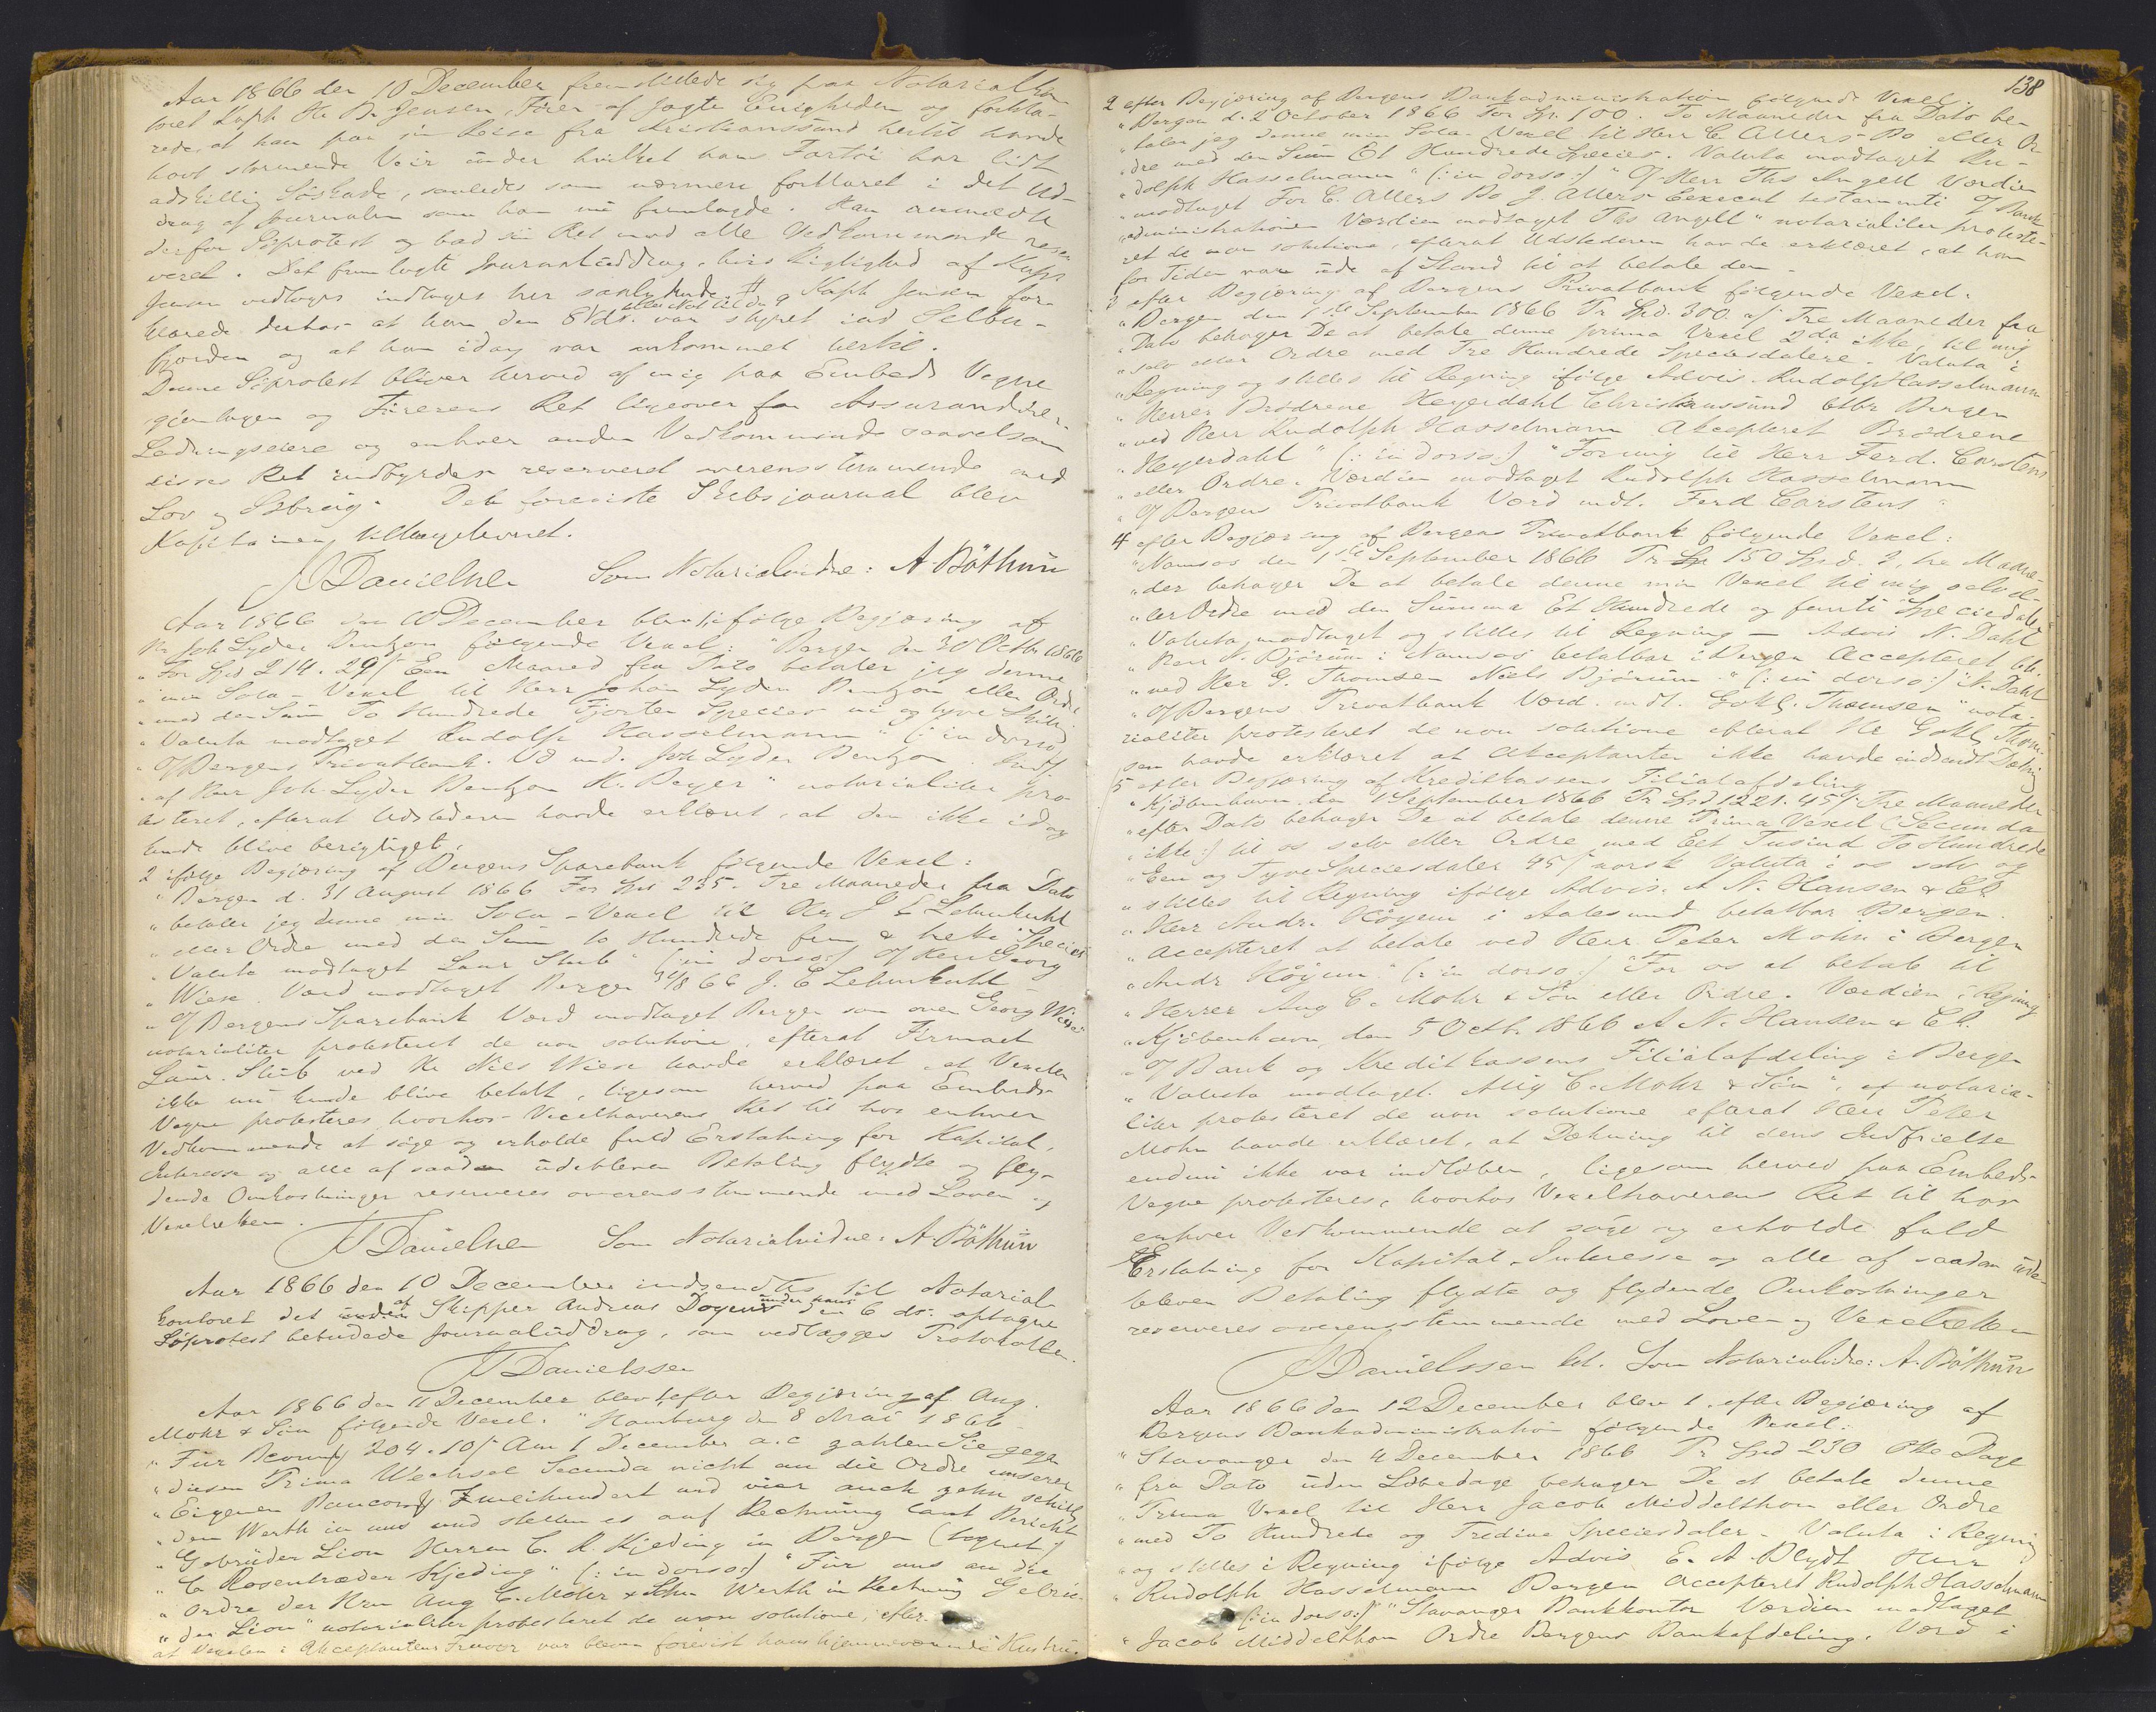 Aar 1866 den 10 December fremstillede sig paa Notarialkon-
toret Kaph H. B. Jensen, Fører af Jagte Enigheden og forkla-
rede, at han paa sin Reise fra Kristianssund hertil havde
havt stormende Veir under hvilket hans Fartøi har lidt
adskillig Søskade, saaledes som nærmere forklaret i det Ud-
drag af Journalen som han nu fremlagde. Han anmeldte
derfor Søprotest og bad sin Ret mod alle Vedkommende reser-
veret. Det fremlagte Journaluddrag, hvis Rigtighed af Kaph
Jensen vedtoges indtages her saalydende # Kaph Jensen for-
klarede derhos at han den 8 ds. eller Nat til den 9 var styret ind Selbu-
fjorden og at han idag var ankommet hertil.
Denne Søprotest bliver herved af mig paa Embeds Vegne
gjentagen og Førerens Ret ligeover for Assurandører
Ladningseiere og enhver anden Vedkommende saavelsom
disses Ret indbyrdes reserveret overensstemmende med
Lov og Søbrug. Det foreviste Skibsjournal blev
Kapitainen tilbageleveret.
JJDanielsen Som Notarialvidne: A. Bøthun
Aar 1866 den 10 December blev 1, ifølge Begjæring af
Hr Joh Lyder Bentzon følgende Vexel: "Bergen den 30 Octbr 1866
"For Spd 214. 29ß Een Maaned fra Dato betaler jeg denne
"min Sola-Vexel til Herr Johan Lyder Bentzon eller Ordre
"med den Sum To Hundrede Fjorten Species ni og tyve Skill.
"Valuta modtaget Rudolph Hasselmann" (: in dorso:)
"Til Bergens Privatbank. Vd md. Joh Lyder Bentzon
"af Herr Joh. Lyder Bentzon H. Beyer" notarialiter pro-
testeret, efterat Udstederen havde erklæret, at den ikke idag
kunde blive berigtiget.
2 ifølge Begjæring af Bergens Sparebank følgende Vexel:
"Bergen d. 31 August 1866 For Spd 235. Tre Maaneder fra Dato
"betaler jeg denne min Sola-Vexel til Hr J E Lehmkuhl
"eller Ordre med den Sum to Hundrede fem & treti Species
"Valuta modtaget Laur Stub" (: in dorso:) Til Herr Georg
"Wiese. Værd modtaget Bergen 31/8 66 J. E Lehmkuhl
"Til Bergens Sparebank Værd modtaget Bergen som oven Georg Wiese"
notarialiter protesteret de non solutione, efterat Firmaet
Laur. Stub ved Hr Niels Wiese havde erklæret, at Vexelen
ikke nu kunde blive betalt, ligesom herved paa Embeds-
Vegne protesteres, hvorhos Vexelhaverens Ret til hos enhver
Vedkommende at søge og erholde fuld Erstatning for Kapital,
Interesse og alle af saadan udebleven Betaling flydte og fly-
dende Omkostninger reserveres overensstemmende med Loven og
Vexelretten.
JJDanielsen Som Notarialvidne: A. Bøthun
Aar 1866 den 10 December indsendtes til Notarial
Kontoret det af Skipper Andreas Doyens under hans den 6 ds: optagne
Søprotest bebudede Journaluddrag, som vedlægges Protokollen.
JJDanielssen
Aar 1866 den 11 December blev 1, efter Begjæring af Aug.
Mohr & Søn følgende Vexel. "Hamburg den 8 Mai 1866
"Für Bcomf 204. 10ß Am 1 December a.c zahlen Sie gegen
"diesen Prima Wechsel Secunda nicht an die Ordre unserer
"Eigenen Bancomf Zweihundert und vier auch zehn schill
"den Werth in uns und stellen es auf Rechnung laut Bericht
"Gebrüder Lion Herrn C. R. Kjeding in Bergen (tegnet)
"C Rosenkræder Kjeding" (: in dorso:) "Für uns an die
"Ordre der Hrn Aug C. Mohr & Sohn Werth in Rechnung Gebrü-
"der Lion" notarialiter protesteret de non solutione, efter
at Vexelen i Akceptantens Fravær var bleven forevist hans hjemmeværende Hustru.
138
2 efter Begjæring af Bergens Bankadministration følgende Vexel.
"Bergen d. 2 October 1866 For Sp. 100. To Maaneder fra Dato be-
"taler jeg denne min Sola-Vexel til Herr C Allers-Bo eller Or-
"dre med den Sum Et Hundrede Species. Valuta modtaget Ru-
"dolph Hasselmann" (: in dorso:) "Til Herr Ths Angell Værdien
"modtaget For C. Allers Bo J. Allers Execut testamenti Til Bank-
"administrationen Værdien modtaget Ths Angell" notarialiter proteste-
ret de non solutione, efterat Udstederen havde erklæret, at han
for Tiden var ude af Stand til at betale den.
3 efter Begjæring af Bergens Privatbank følgende Vexel.
"Bergen den 1ste September 1866 Pr Spd. 300 a/ Tre Maaneder fra
"Dato behager De at betale denne prima Vexel 2da ikke, til mig
"selv eller Ordre med Tre Hundrede Speciesdalere. Valuta i
"Regning og stilles til Regning ifølge Advis. Rudolph Hasselmann
"Herrer Brødrene Heyerdahl Christianssund btbr Bergen
"ved Herr Rudolph Hasselmann Akcepteret Brødrene
"Heyerdahl" (: in dorso:) "For mig til Herr Ferd. Carstens
"eller Ordre. Værdien modtaget Rudolph Hasselmann
"Til Bergens Privatbank Værd mdt. Ferd Carstens"
4 efter Begjæring af Bergens Privatbank følgende Vexel:
"Namsos den 1ste September 1866 Pr Sp 150 Spd. 3, tre Maane-
"der behager De at betale denne min Vexel til mig selv el-
"ler Ordre med den Summa Et Hundrede og femti Speciedaler
"Valuta modtaget og stilles til Regning - Advis N. Dahl
"Herr N. Bjørum i Namsos betalbar i Bergen Accepteret btb.
"ved Herr G. Thomsen Niels Bjørum" (: in dorso:) "N. Dahl
"Til Bergens Privatbank Værd. mdt. Gotl. Thomsen" nota-
rialiter protesteret de non solutione efterat Hr Gotl. Thom-
sen havde erklæret at Akceptanten ikke havde indsendt Dækning
5 efter Begjæring af Kreditkassens Filialafdeling
"Kjøbenhavn den 1 September 1866 Pr Spd 1221. 45ß. Tre Maaneder
"efter Dato behager De at betale denne Prima Vexel (Secunda
"ikke:) til os selv eller Ordre med Eet Tusind To Hundrede
"Een og Tyve Speciesdaler 45ß norsk Valuta i os selv og
"stilles til Regning ifølge Advis. A N. Hansen & Co
"Herr Andr. Höyem i Aalesund betalbar Bergen
"Accepteret at betale ved Herr Peter Mohn i Bergen
"Andr Höyem" (: in dorso:) "For os at betale til
"Herrer Aug C. Mohr & Søn eller Ordre. Værdien i Regning
"Kjøbenhavn, den 5 Octbr 1866 A N. Hansen & Co.
"Til Bank og Kreditkassens Filialafdeling i Bergen
"Valuta modtaget. Aug C. Mohr & Søn", notaria-
liter protesteret de non solutione efterat Herr Peter
Mohn havde erklæret, at Dækning til dens Indfrielse
endnu ikke var indløben, ligesom herved paa Embeds-
Vegne protesteres, hvorhos Vexelhaverens Ret til hos
enhver Vedkommende at søge og erholde fuld
Erstatning for Kapital, Interesse og alle af saadan ude-
bleven Betaling flydte og flydende Omkostninger
reserveres overensstemmende med Loven og Vexelretten
JJDanielssen Som Notarialvidne: A. Bøthun
Aar 1866 den 12 December blev 1. efter Begjæring af
Bergens Bankadministration følgende Vexel:
"Stavanger den 4 December 1866 Pr Spd 230 Otte Dage
"fra Dato uden Løbedage behager De at betale denne
"Prima Vexel til Herr Jacob Middelthon eller Ordre
"med To Hundrede og Tredive Speciesdaler - Valuta i Regning
"og stilles i Regning ifølge Advis E. A. Blydt Herr
"Rudolph Hasselmann Bergen Accepteret Rudolph Hasselmann
(: in dorso:) "Stavanger Bankkontor Værdien modtaget
"Jacob Middelthon Ordre Bergens Bankafdeling. Værd i